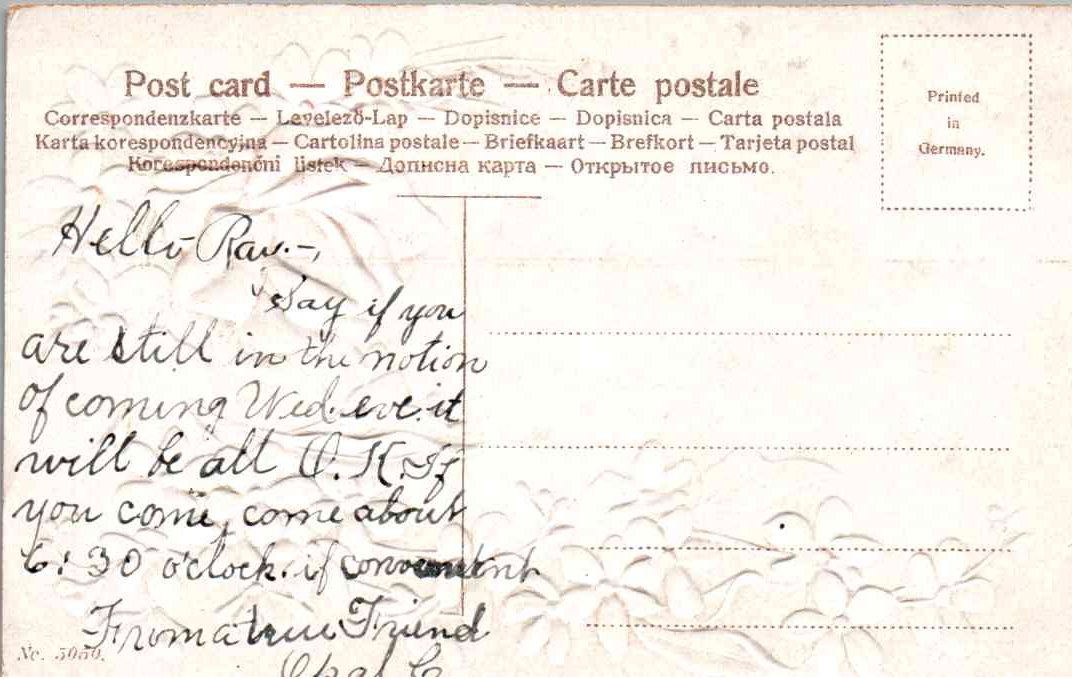 Post card — Postkarte — Carte postale
Correspondenzkarte — Levelező-Lap — Dopisnice — Dopisnica — Carta postala
Karta korespondencyjna — Cartolina postale — Briefkaart — Brefkort — Tarjeta postal
Korespondenčni listek — Дописна карта — Открытое письмо.
Printed
in
Germany.
Hello Ray.-,
Say if you
are still in the notion
of coming Wed. eve. it
will be all O. K. If
you come, come about
6:30 o'clock. if convenient
From a true Friend
Opal C
No. 5050.